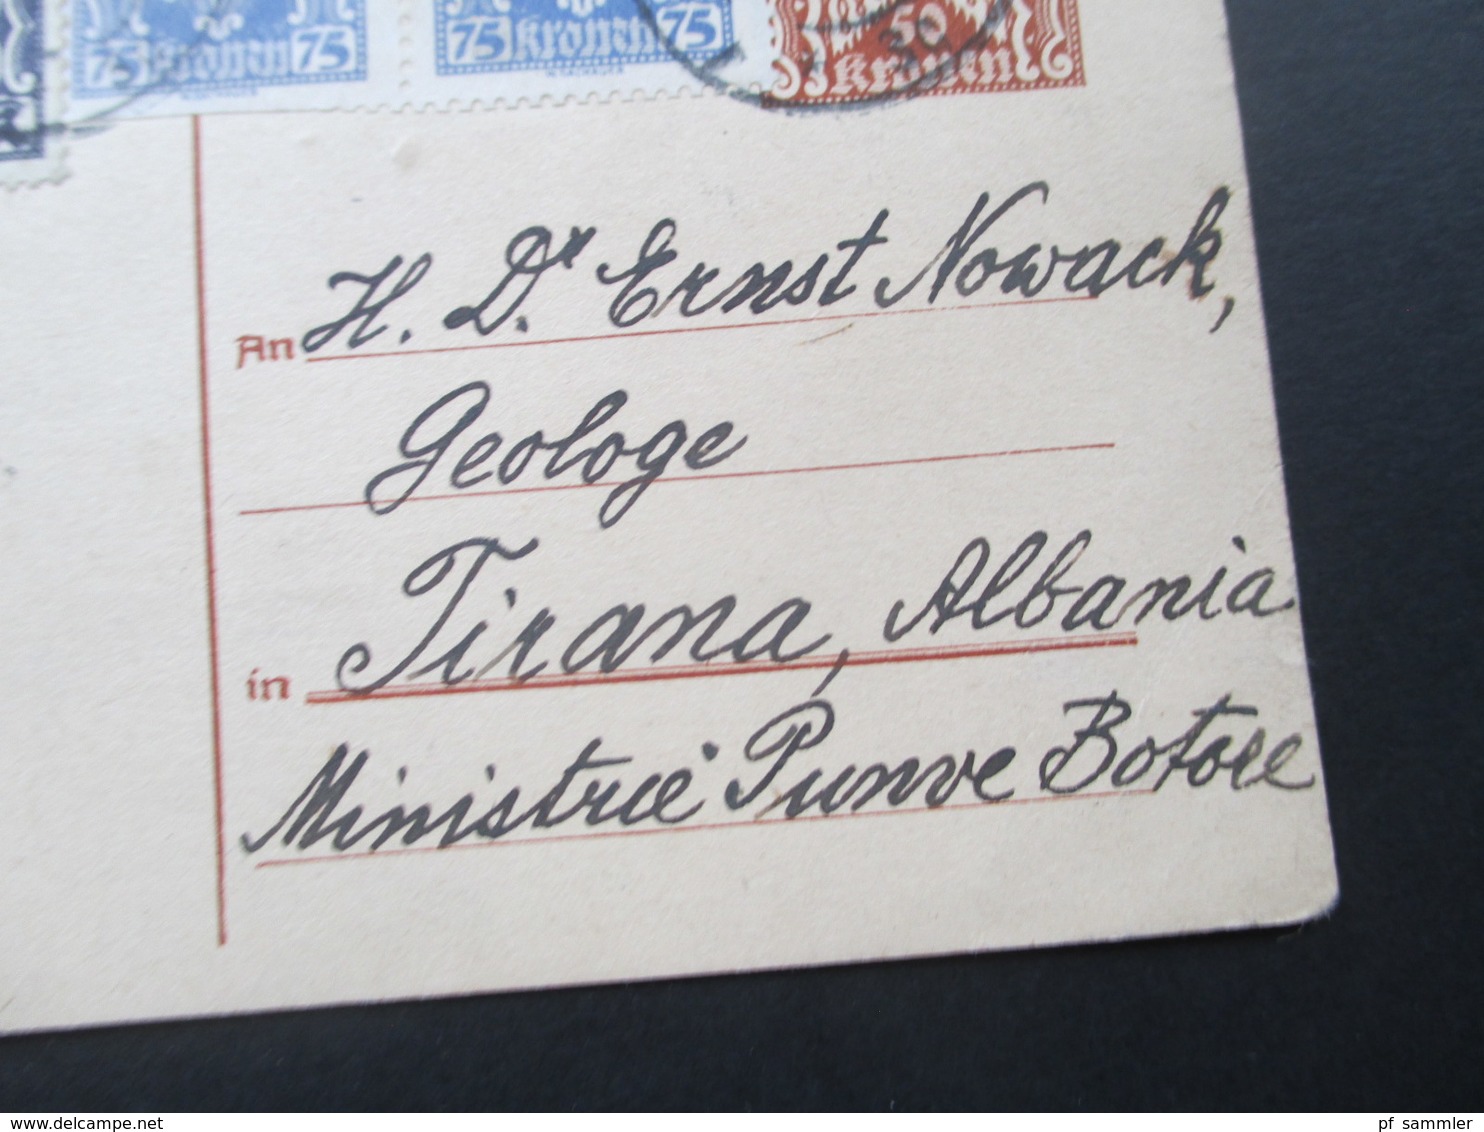 75 Kronen 75
75 Kronen 75
50
Kronen
30
An H. Dr. Ernst Nowack,
Geologe
in Tirana, Albania
Ministrie Punve Botore
pf_sammler